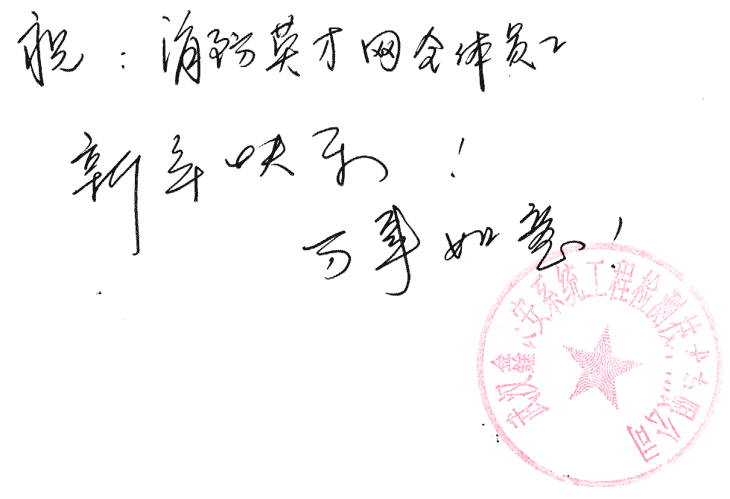 祝：消防英才网全体员工
新年快乐！
万事如意！
武汉鑫 安系统工程检测技术有限公司